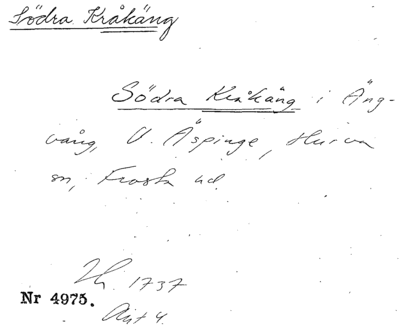 Södra Kråkäng
Södra Kråkäng i Äng-
vång, V. Äspinge, Hurva
sn, Frosta hd.
1737
Nr 4975.
Akt 4.